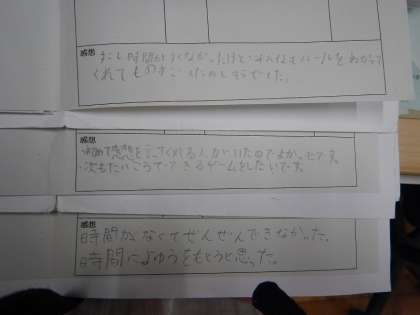 感想
すこし時間がすくなかったけど、みんなもルールをわかって
くれてものすごくたのしそうでした。
感想
決めて感想を言ってくれる人がいたのでよかったです。
次もたいこうでできるゲームをしたいです。
感想
時間がなくてぜんぜんできなかった。
時間によゆうをもとうと思った。